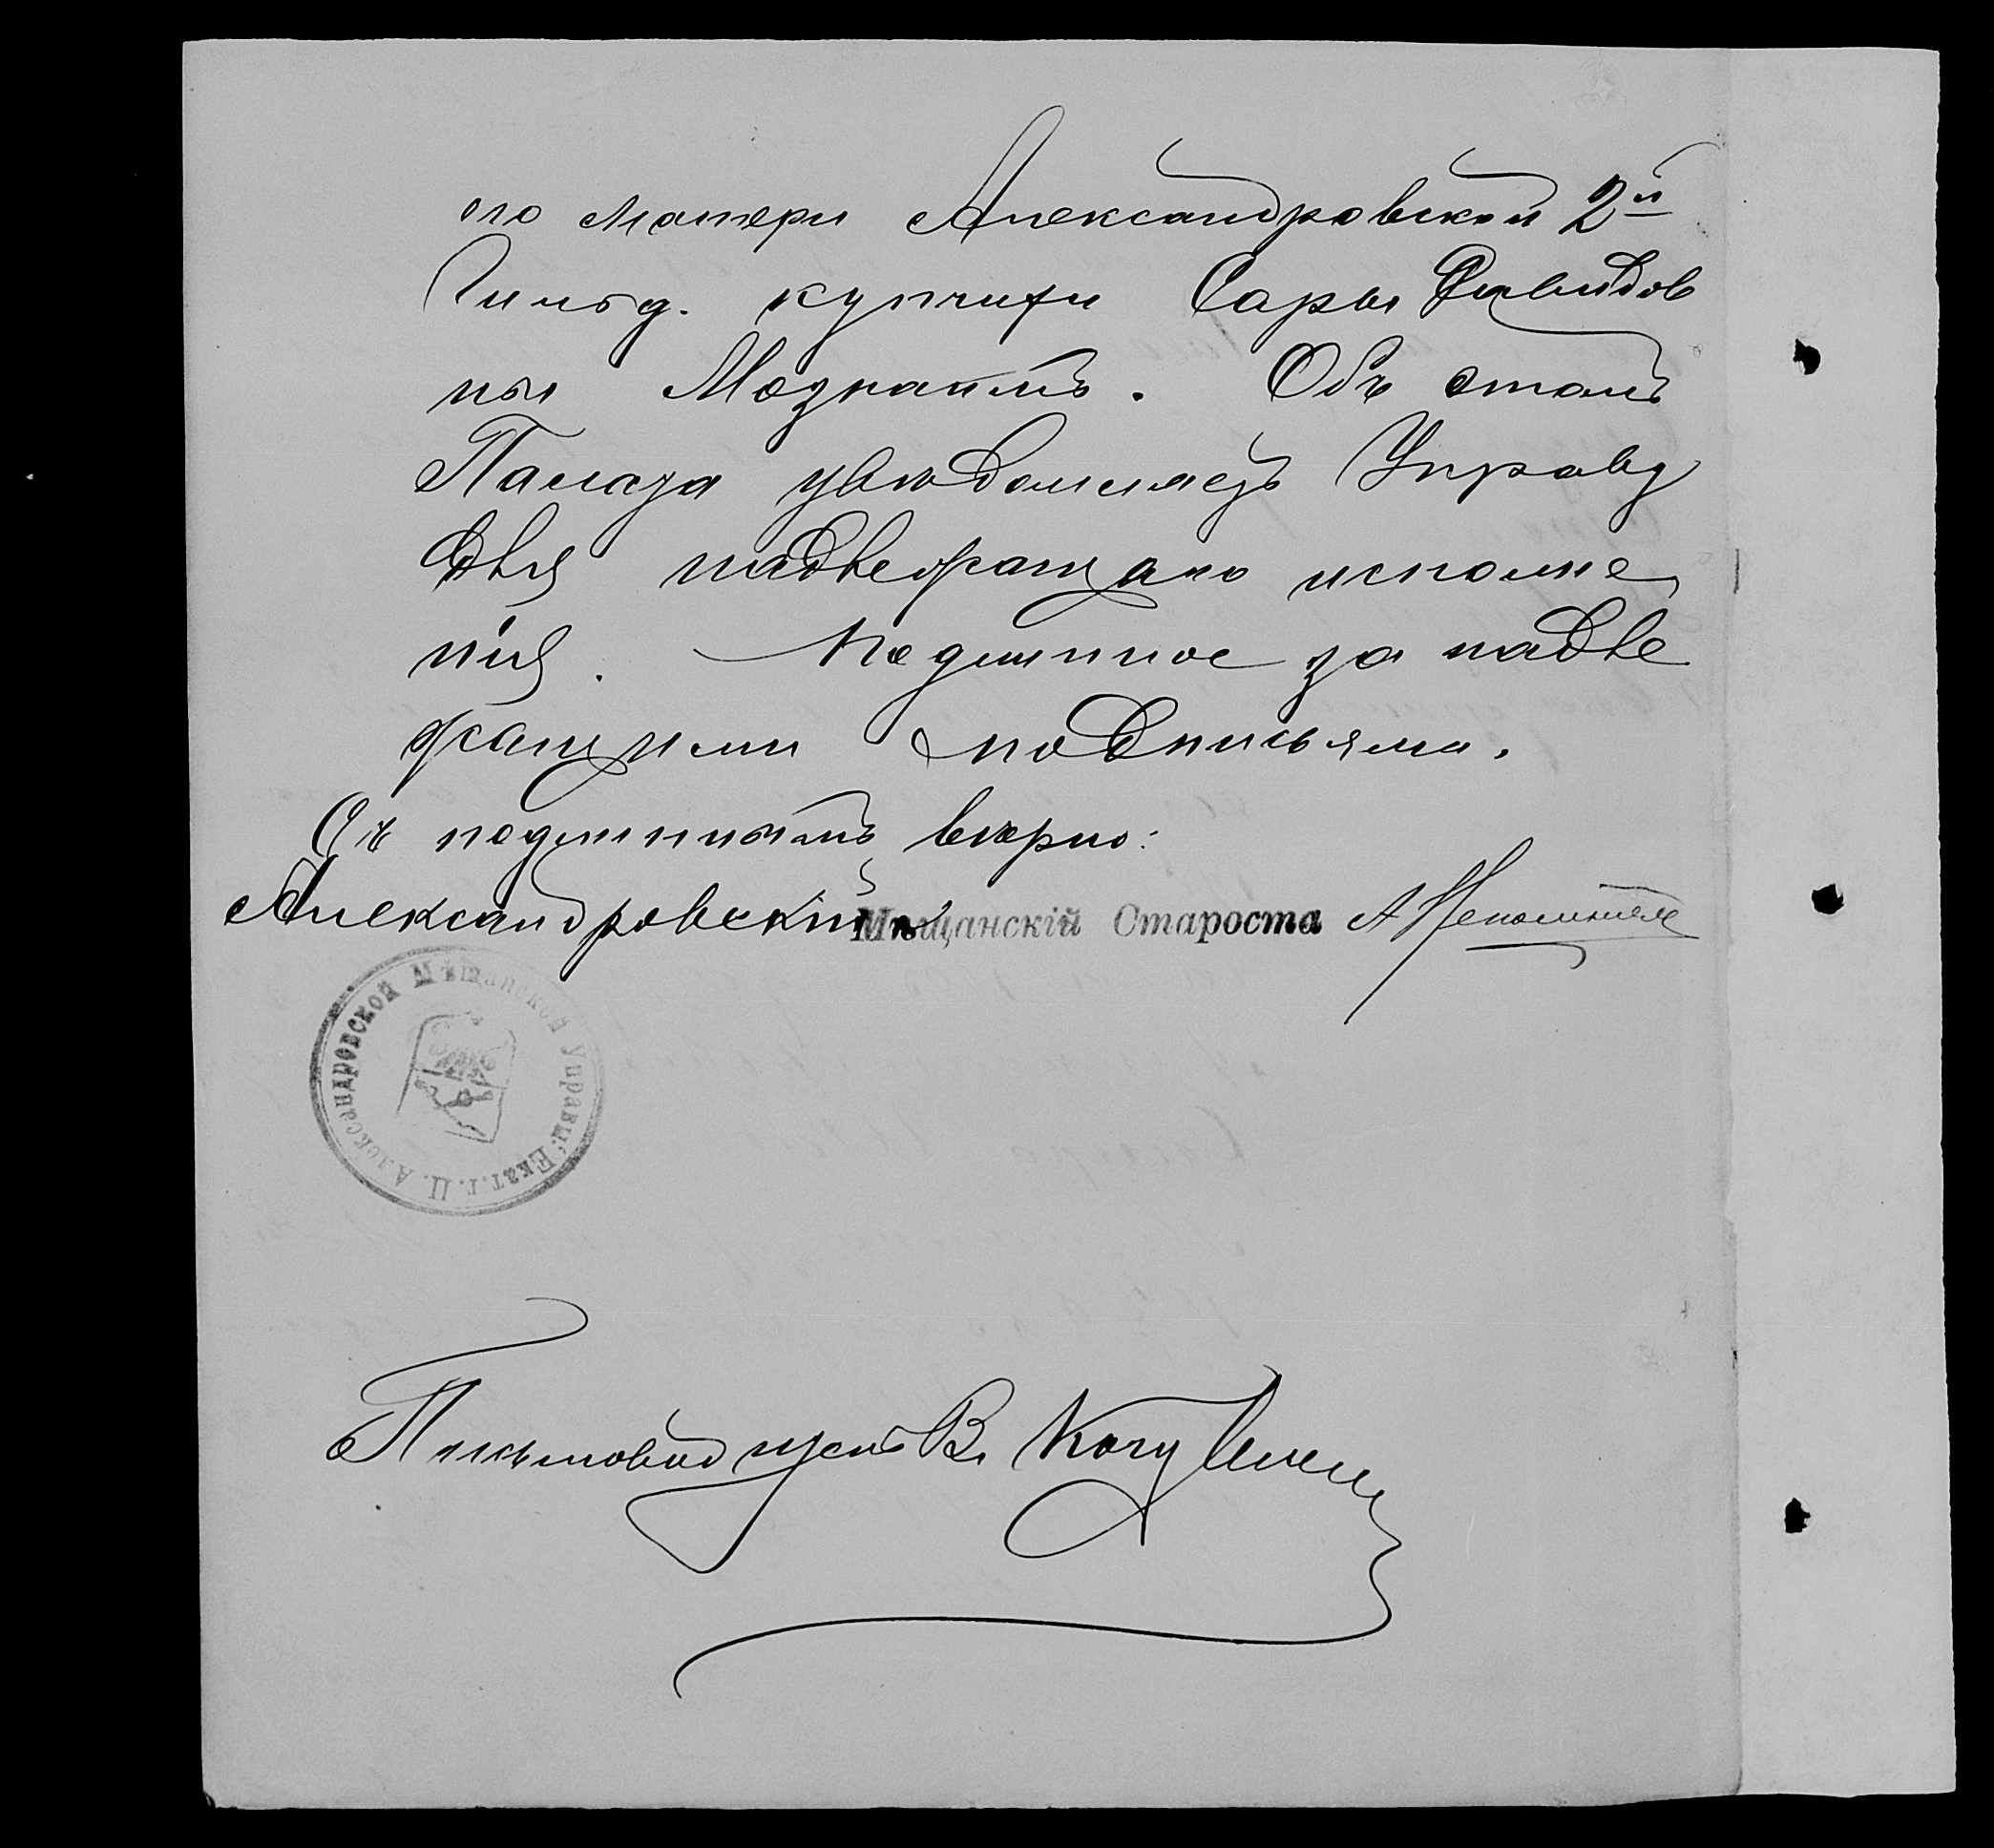 его матери Александровской 2й
Гильд. купчихи Сары Давидов
ны Мознаимъ. Объ этомъ
Палата увѣдомляетъ Управу
для надлежащаго исполне
нія. Подлинное за надле
жащими подписьями.
Съ подлиннымъ вѣрно:
Александровскій Мѣщанскій Староста А
Александровской Мѣщанской Управы. Екат. г. П.
Письмоводитель В.